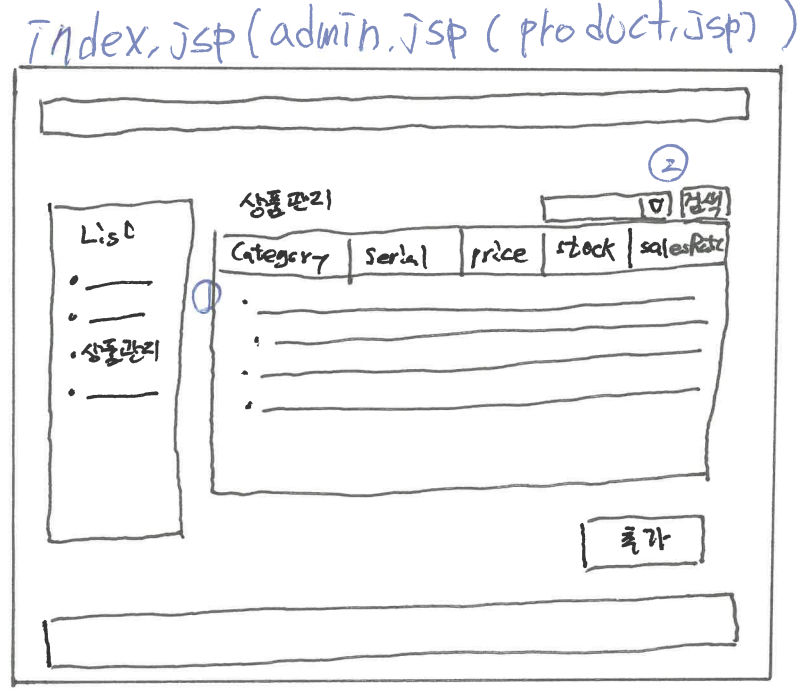 index.jsp(admin.jsp(product.jsp))
②
상품관리
검색
List
Category serial price stock salesRate
①
상품관리
추가